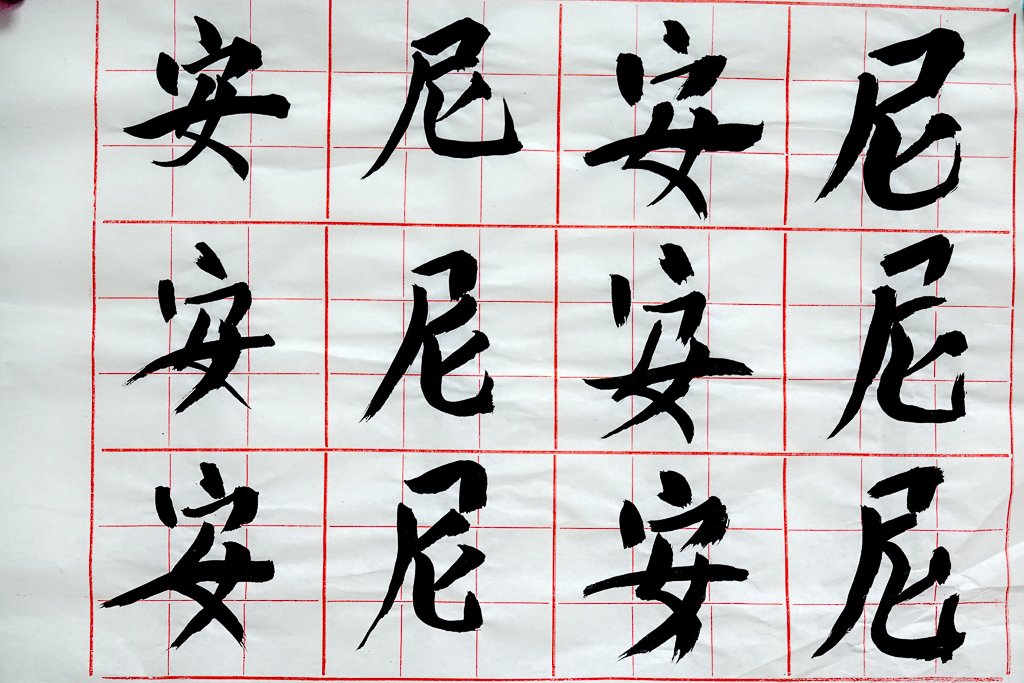 安尼安尼
安尼安尼
安尼安尼